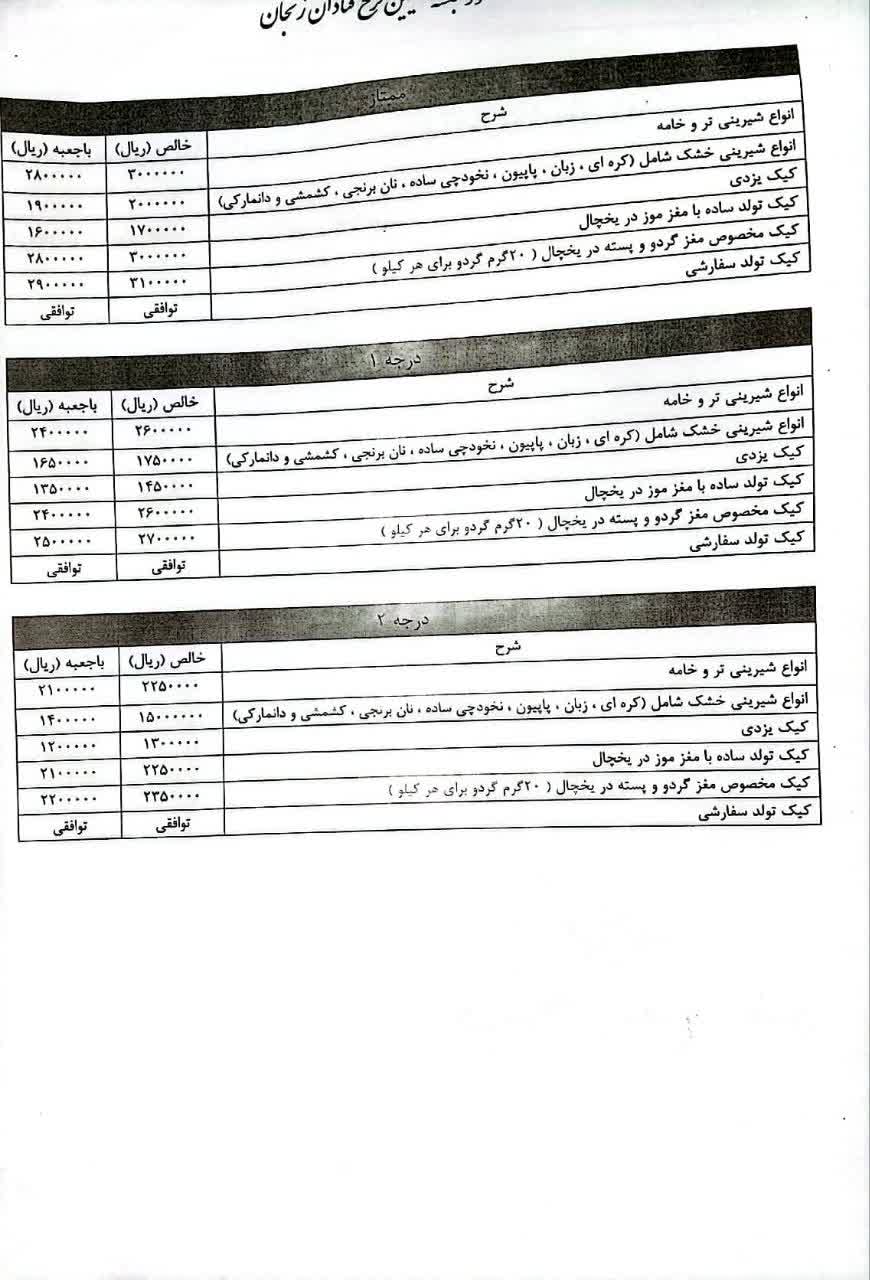 نرخ قنادان زنجان
ممتاز
شرح	خالص (ریال)	باجعبه (ریال)
انواع شیرینی تر و خامه	۳۰۰۰۰۰۰	۲۸۰۰۰۰۰
انواع شیرینی خشک شامل (کره ای ، زبان ، پاپیون ، نخودچی ساده ، نان برنجی ، کشمشی و دانمارکی)	۲۰۰۰۰۰۰	۱۹۰۰۰۰۰
کیک یزدی	۱۷۰۰۰۰۰	۱۶۰۰۰۰۰
کیک تولد ساده با مغز موز در یخچال	۳۰۰۰۰۰۰	۲۸۰۰۰۰۰
کیک مخصوص مغز گردو و پسته در یخچال ( ۲۰گرم گردو برای هر کیلو )	۳۱۰۰۰۰۰	۲۹۰۰۰۰۰
کیک تولد سفارشی	توافقی	توافقی
درجه ۱
شرح	خالص (ریال)	باجعبه (ریال)
انواع شیرینی تر و خامه	۲۶۰۰۰۰۰	۲۴۰۰۰۰۰
انواع شیرینی خشک شامل (کره ای ، زبان ، پاپیون ، نخودچی ساده ، نان برنجی ، کشمشی و دانمارکی)	۱۷۵۰۰۰۰	۱۶۵۰۰۰۰
کیک یزدی	۱۴۵۰۰۰۰	۱۳۵۰۰۰۰
کیک تولد ساده با مغز موز در یخچال	۲۶۰۰۰۰۰	۲۴۰۰۰۰۰
کیک مخصوص مغز گردو و پسته در یخچال ( ۲۰گرم گردو برای هر کیلو )	۲۷۰۰۰۰۰	۲۵۰۰۰۰۰
کیک تولد سفارشی	توافقی	توافقی
درجه ۲
شرح	خالص (ریال)	باجعبه (ریال)
انواع شیرینی تر و خامه	۲۲۵۰۰۰۰	۲۱۰۰۰۰۰
انواع شیرینی خشک شامل (کره ای ، زبان ، پاپیون ، نخودچی ساده ، نان برنجی ، کشمشی و دانمارکی)	۱۵۰۰۰۰۰۰	۱۴۰۰۰۰۰
کیک یزدی	۱۳۰۰۰۰۰	۱۲۰۰۰۰۰
کیک تولد ساده با مغز موز در یخچال	۲۲۵۰۰۰۰	۲۱۰۰۰۰۰
کیک مخصوص مغز گردو و پسته در یخچال ( ۲۰گرم گردو برای هر کیلو )	۲۳۵۰۰۰۰	۲۲۰۰۰۰۰
کیک تولد سفارشی	توافقی	توافقی